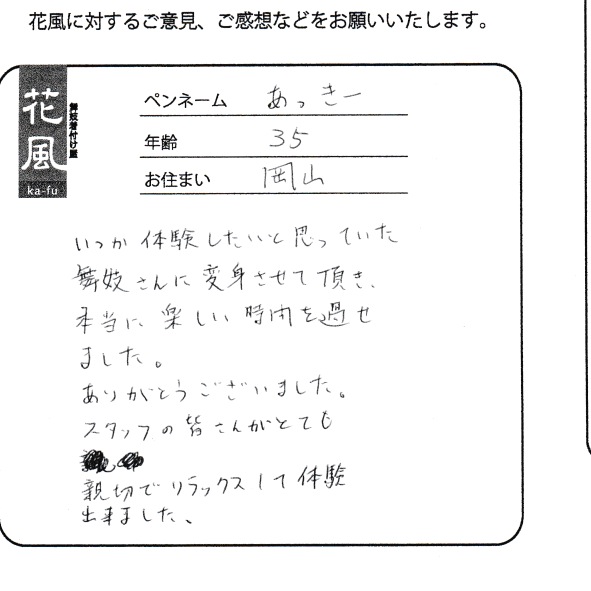 花風に対するご意見、ご感想などをお願いいたします。
花風
舞妓着付け屋
ka-fu
ペンネーム あっきー
年齢 35
お住まい 岡山
いつか体験したいと思っていた
舞妓さんに変身させて頂き、
本当に楽しい時間を過せ
ました。
ありがとうございました。
スタッフの皆さんがとても
親切でリラックスして体験
出来ました、